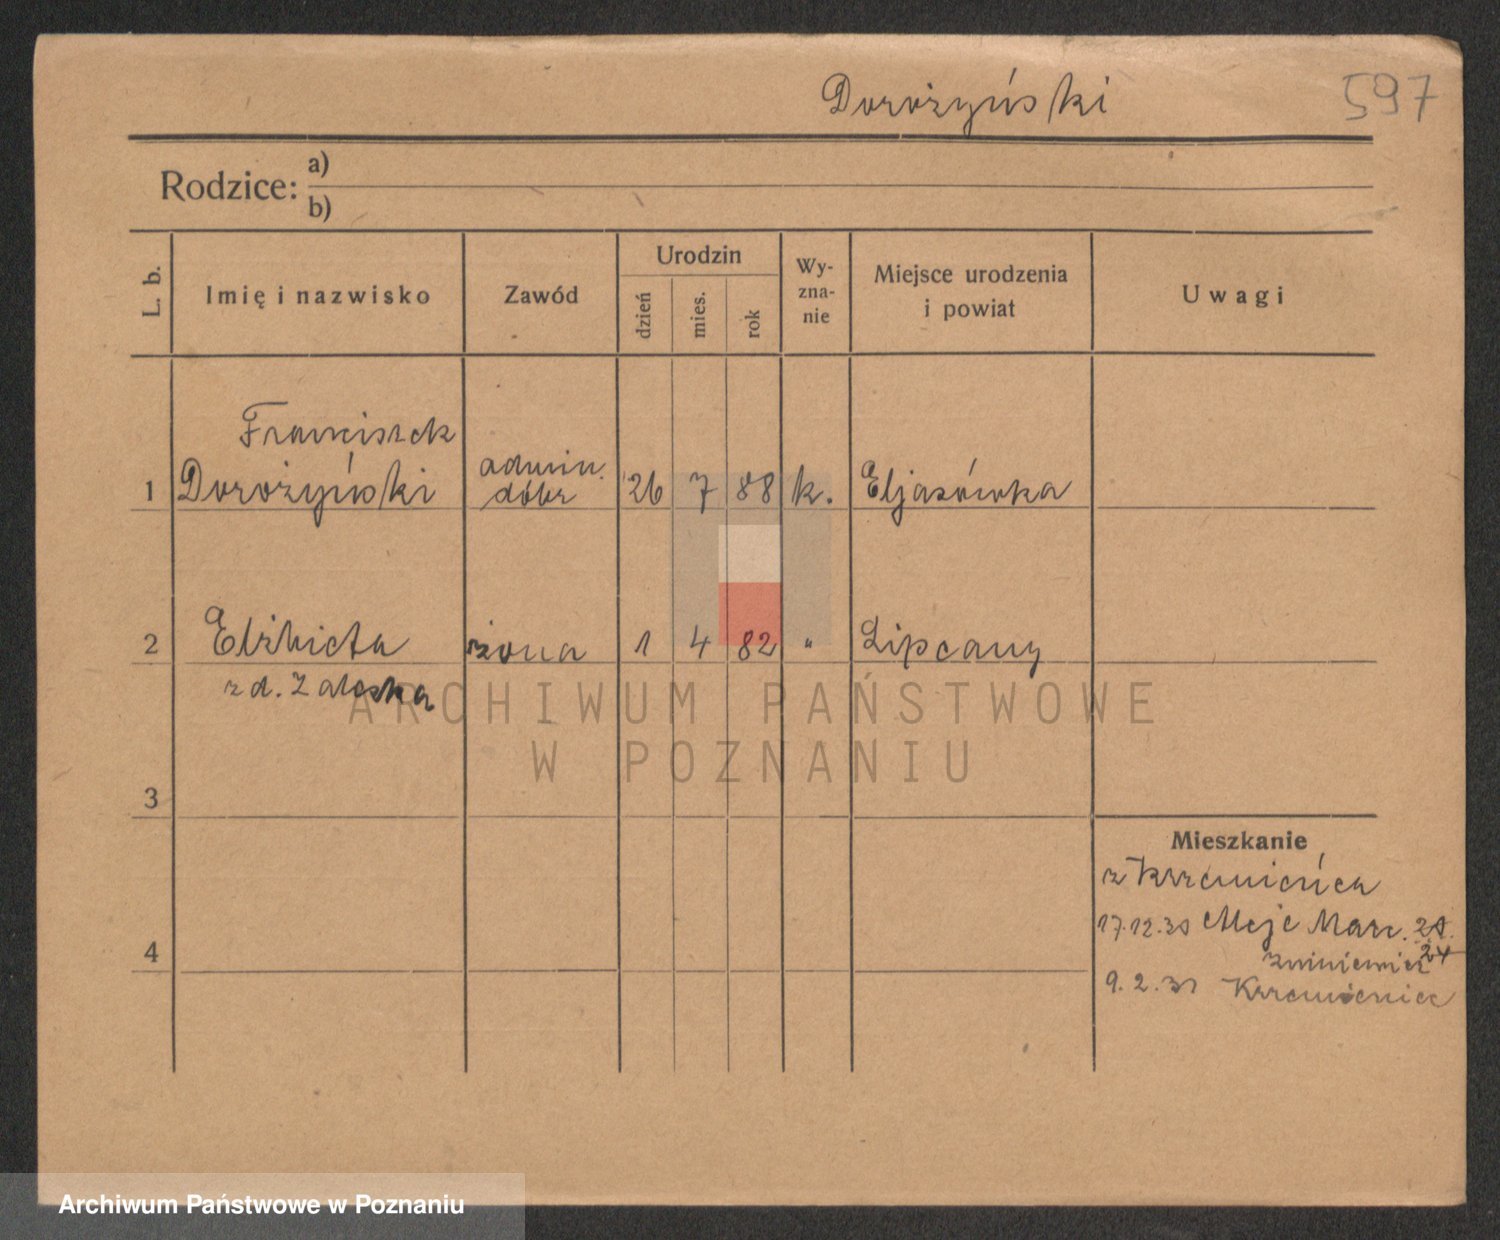 Dorożyński
597
Rodzice:
a)
b)
L. b.
Imię i nazwisko
Zawód
Urodzin
dzień
mies.
rok
Wy-
zna-
nie
Miejsce urodzenia
i powiat
Uwagi
Franciszek
1 Dorożyński
admin.
dóbr
26 7 88 k. Eljasówka
2 Elżbieta żona 1 4 82 " Lipcany
z d. Zaleska
3
4
Mieszkanie
z Krzemieńca
17.12.30 Aleje Marc.
9.2.31 Krzemieniec
ARCHIWUM PAŃSTWOWE
W POZNANIU
Archiwum Państwowe w Poznaniu